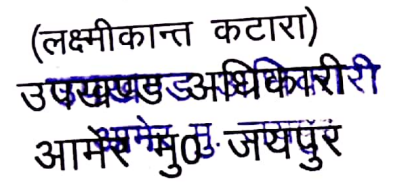 (लक्ष्मीकान्त कटारा)
उपखण्ड अधिकारी
आमेर मु0 जयपुर